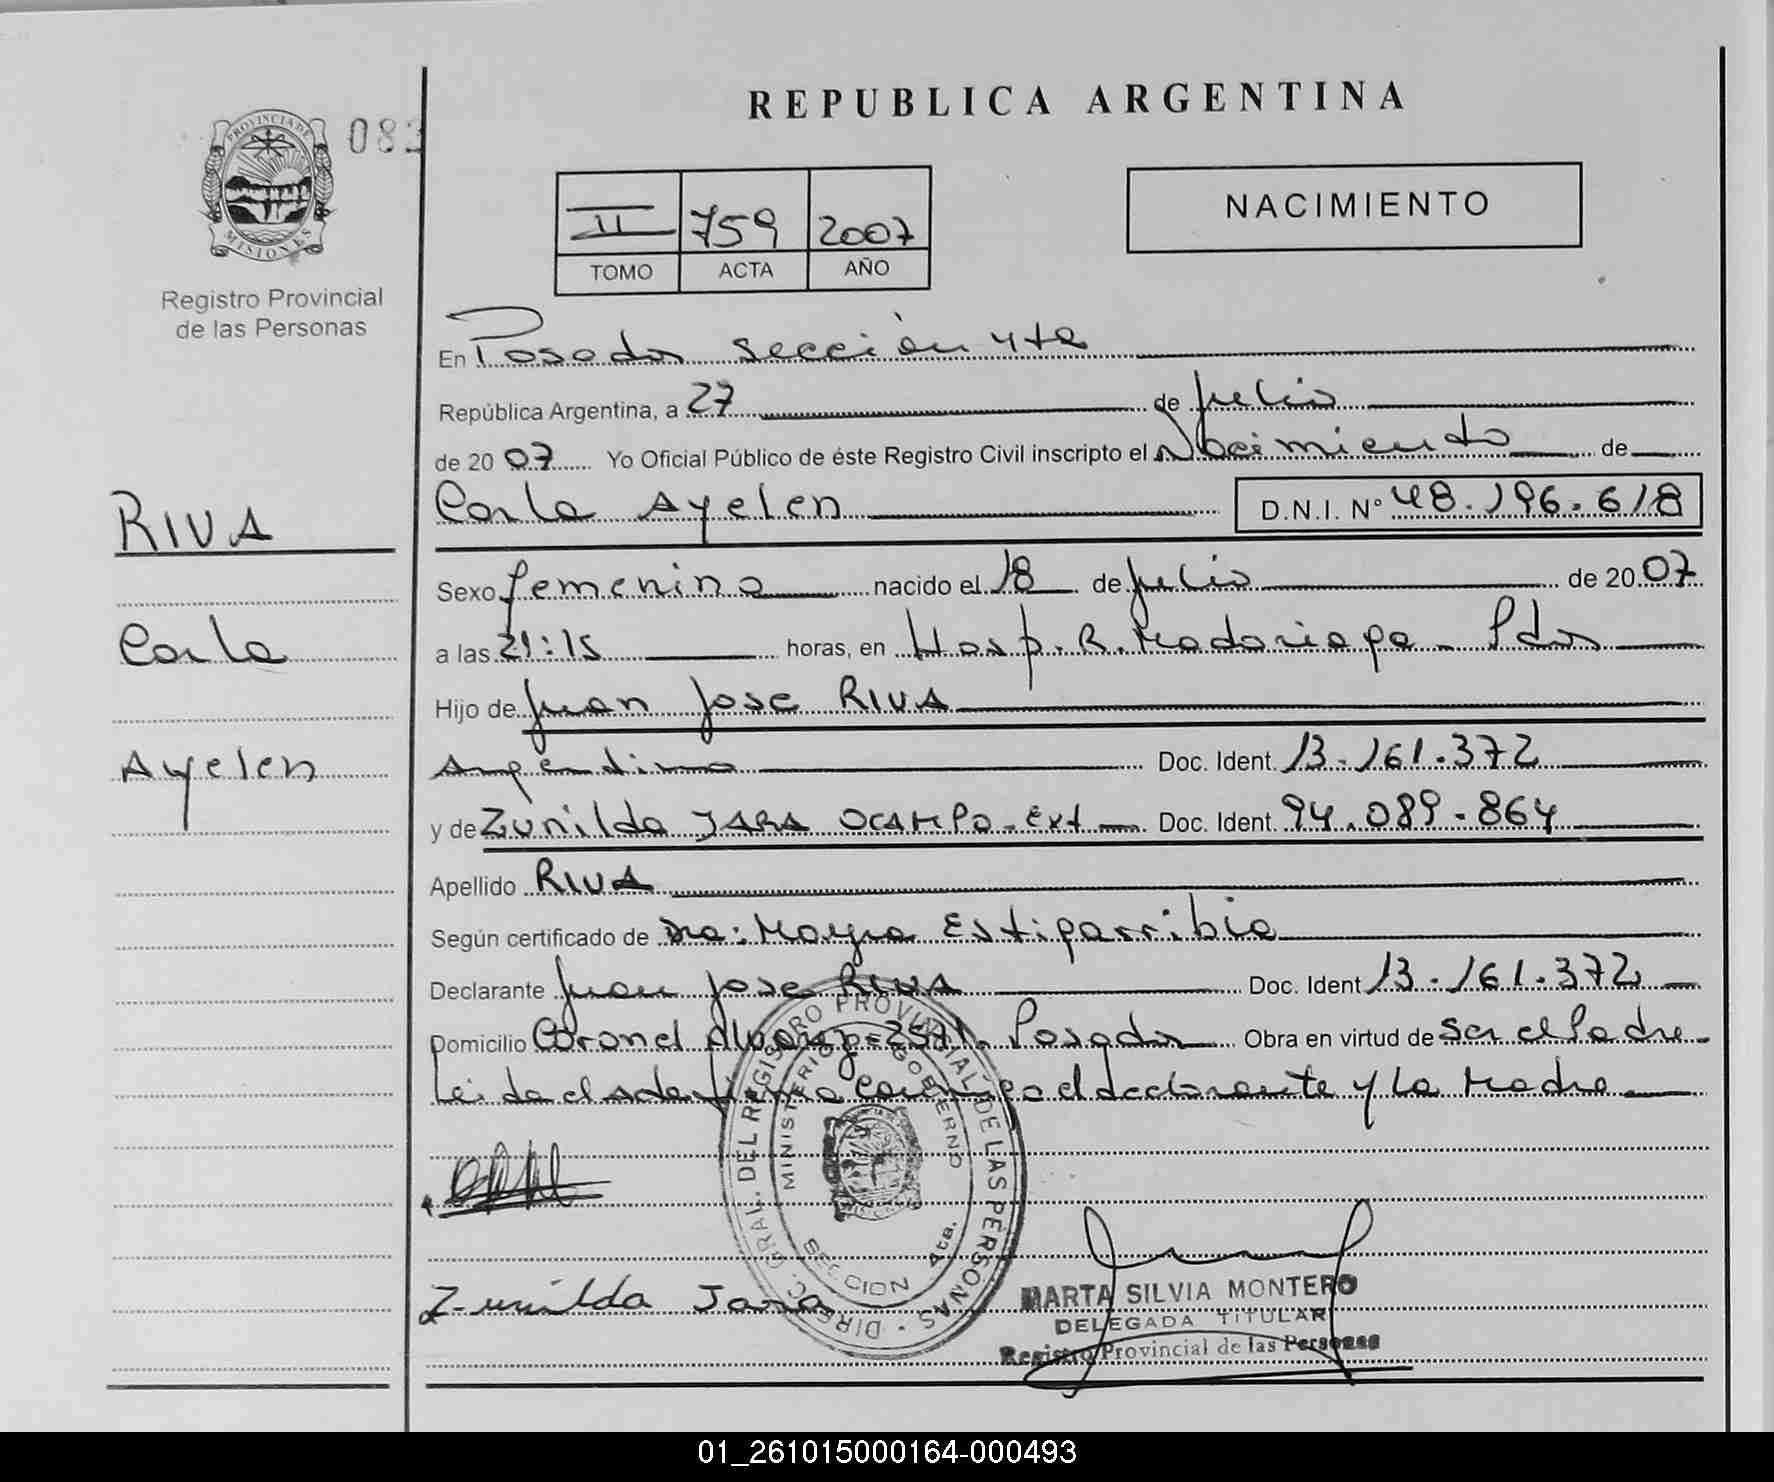 REPUBLICA ARGENTINA
PROVINCIA DE
MISIONES
083
Registro Provincial
de las Personas
II 759 2007
TOMO ACTA AÑO
NACIMIENTO
En Posadas sección 4ta
República Argentina, a 27 de julio
de 2007 Yo Oficial Público de éste Registro Civil inscripto el Nacimiento de
Carla Ayelen D.N.I. Nº 48.196.618
RIVA
Carla
Ayelen
Sexo femenino nacido el 18 de julio de 2007
a las 21:15 horas, en Hosp. R. Madariaga - Pdas
Hijo de Juan Jose RIVA
Argentino Doc. Ident. 13.161.372
y de Zunilda JARA OCAMPO - Ext Doc. Ident. 94.089.864
Apellido RIVA
Según certificado de Dra: Mayra Estigarribia
Declarante Juan Jose RIVA Doc. Ident 13.161.372
Domicilio Coronel Alvarez 2571. Posadas Obra en virtud de ser el Padre
Leida el acta firma conmigo el declarante y la Madre
DIREC. GRAL. DEL REGISTRO PROVINCIAL DE LAS PERSONAS
MINISTERIO GOBIERNO
SECCION 4ta.
Zunilda Jara
MARTA SILVIA MONTERO
DELEGADA TITULAR
Registro Provincial de las Personas
01_261015000164-000493